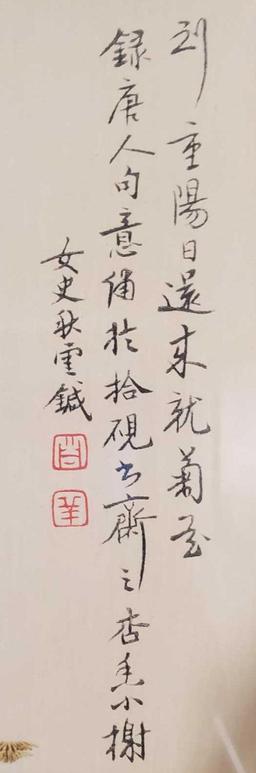 到重陽日還來就菊花
録唐人句意繡於拾硯书齋之杏香小榭
女史秋雲鍼